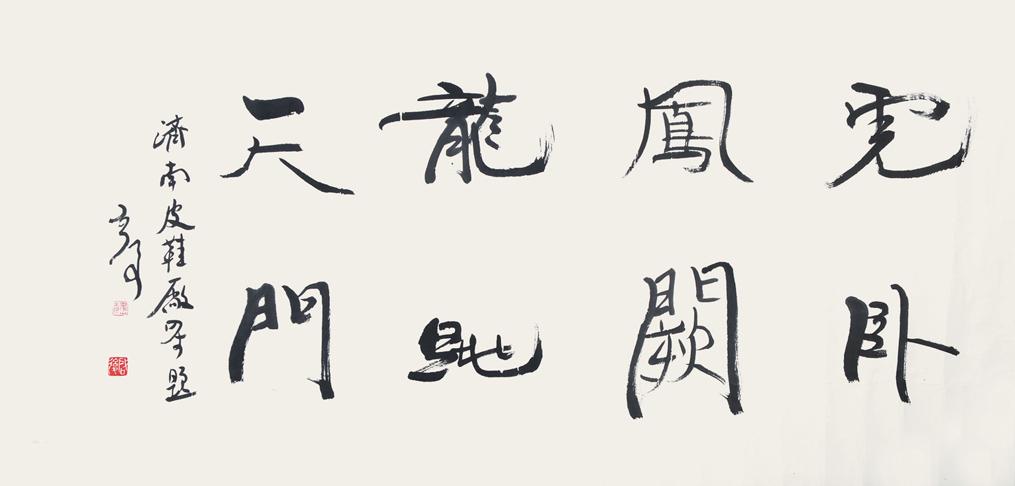 虎卧
鳳闕
龍跳
天門
濟南皮鞋廠題